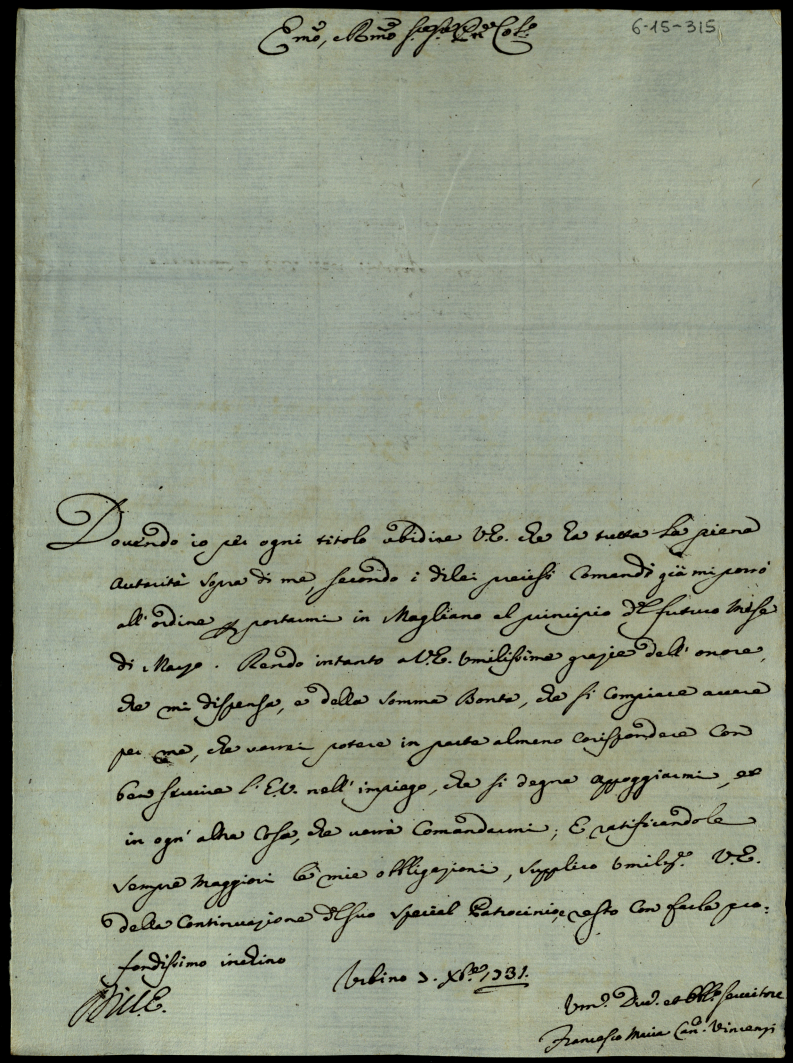 6-15-315
Emo, e Rmo Sig.re Sig.re Pne Col.mo
Dovendo io per ogni titolo ubidire V.E. che ha tutta la piena
autorità sopra di me, secondo i di lei precisi comandi già mi porrò
all'ordine p portarmi in Magliano al principio del futuro Mese
di Mayo. Rendo intanto a V.E. umilissime grazie dell'onore,
che mi dispensa, e della somma Bontà, che si compiace avere
per me, che vorrei potere in parte almeno corispondere con
ben servire l'E.V. nell'impiego, che si degna appoggiarmi, et
in ogn'altra cosa, che verrà comandarmi; E ratificandole
sempre maggiori le mie obbligazioni, supplico umilm.e V.E.
della continuazione del suo special Patrocinio, e resto con farle pro=
fondissimo inchino
Di V.E.
Urbino 7. Xbre 1731.
Um.o Dev.o et Obb.o Servitore
Francesco Maria Can. Vincenzi